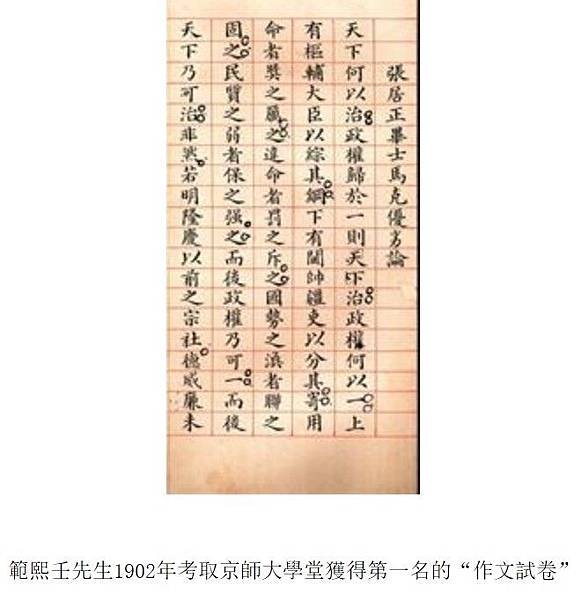 張居正畢士馬克優劣論
天下何以治政權歸於一則天下治政權何以一上
有樞輔大臣以綜其綱下有閫帥疆吏以分其寄用
命者獎之厲之違命者罰之斥之國勢之渙者聯之
固之民質之弱者保之强之而後政權乃可一而後
天下乃可治非然若明隆慶以前之宗社德威廉未
範熙壬先生1902年考取京師大學堂獲得第一名的“作文試卷”